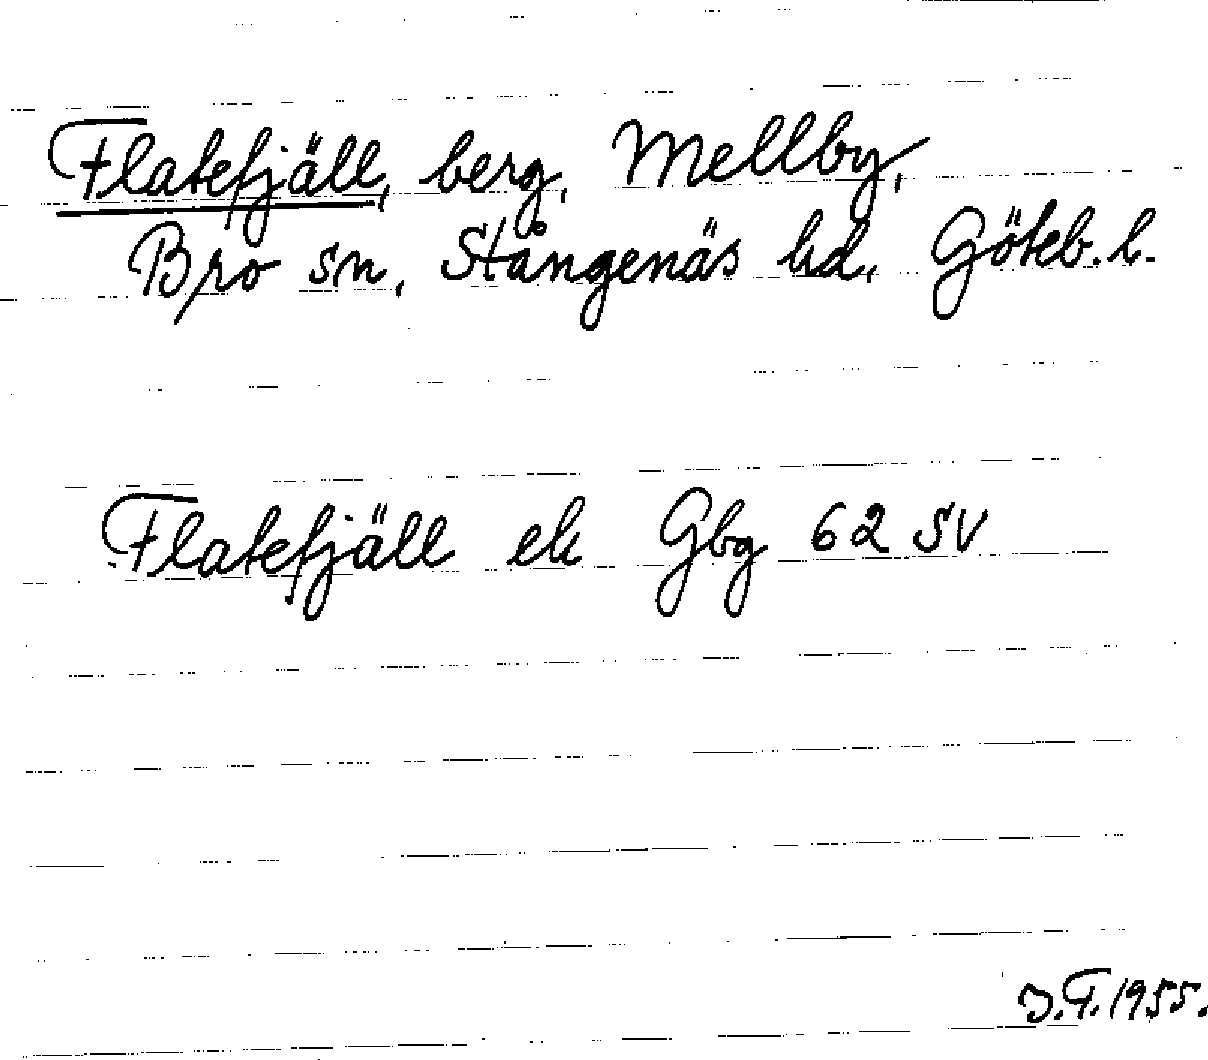 Flatefjäll, berg, Mellby,
Bro sn, Stångenäs hd, Göteb. l.
Flatefjäll ek Gbg 62 SV
J.T. 1955.